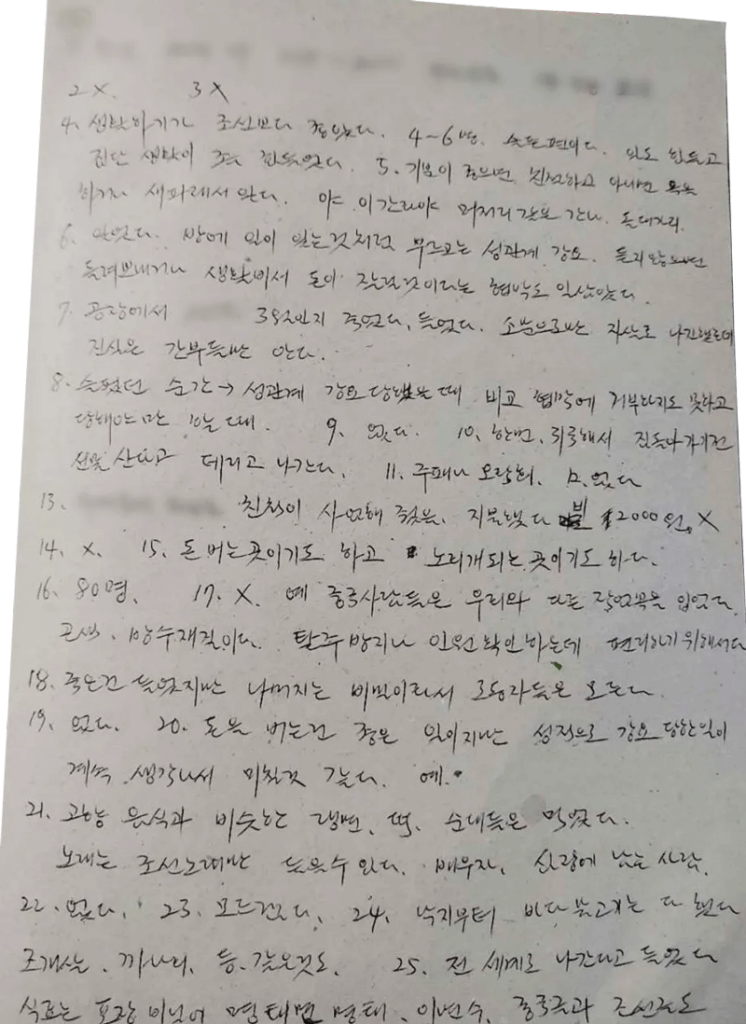 2 X. 3 X
4. 생활하기가 조선보다 좋았다. 4~6명. 숙소는 편이다. 일도 힘들고
집단 생활이 조금 힘들었다. 5. 기분이 좋으면 친절하고 아니면 욕을
하거나 세파레서 안다. 야 이 간나야 머저리 같은 간나. 돌대가리.
6. 있었다. 방에 일이 있는것처럼 부르고는 성관계 강요. 듣지 않으면
돌려보내거나 생활비서 돈이 작을것이라는 협박도 일삼았다.
7. 공장에서 3명인지 죽었다. 들었다. 소문으로는 자살로 나긴했는데
진실은 간부들만 안다.
8. 슬펐던 순간→ 성관계 강요 당했을 때 비교 협박에 거부하지도 못하고
당해야만 할 때. 9. 없다. 10. 한번, 귀국해서 집돌아가기전
선물 산다고 데리고 나간다. 11. 주패나 오락회. 12. 없다
13. 친척이 사업해 줬음. 지불했다 빌 $2000 원. X
14. X. 15. 돈 버는곳이기도 하고 노리개되는 곳이기도 하다.
16. 80명. 17. X. 예 중국사람들은 우리와 다른 작업복을 입었다.
곤색. 방수재질이다. 탈주 방지나 인원 확인하는데 편리하기 위해서다
18. 죽은건 들었지만 나머지는 비밀이라서 로동자들은 모른다.
19. 없다. 20. 돈을 버는건 좋은 일이지만 성적으로 강요 당한일이
계속 생각나서 미칠것 같다. 예.
21. 고향 음식과 비슷한 랭면, 떡, 순대등은 먹었다.
노래는 조선노래만 들을수 있다. 배우자, 심장에 남는 사람.
22. 없다. 23. 모르겠다. 24. 낙지부터 바다 물고기는 다 했다
조개살. 까나리. 등. 같은것도. 25. 전 세계로 나간다고 들었다
식료는 포장 비닐에 명태면 명태. 이면수. 중국글과 조선글도